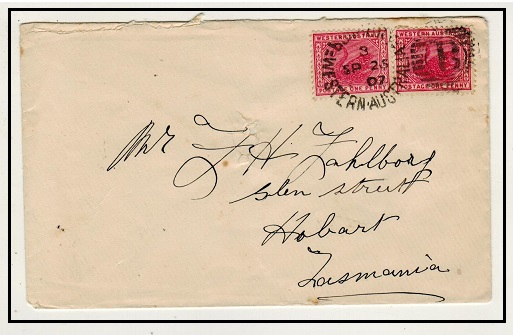 WESTERN AUSTRALIA WESTERN AUSTRALIA
3
SP 25
07
WESTERN AUSTRALIA
POSTAGE ONE PENNY POSTAGE ONE PENNY
Mr F H Fahlborg
Glen Street
Hobart
Tasmania